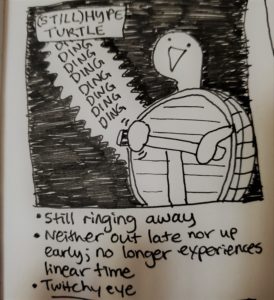 (STILL) HYPE
TURTLE
DING
DING
DING
DING
DING
DING
DING
DING
• Still ringing away
• Neither out late nor up
early; no longer experiences
linear time
• Twitchy eye